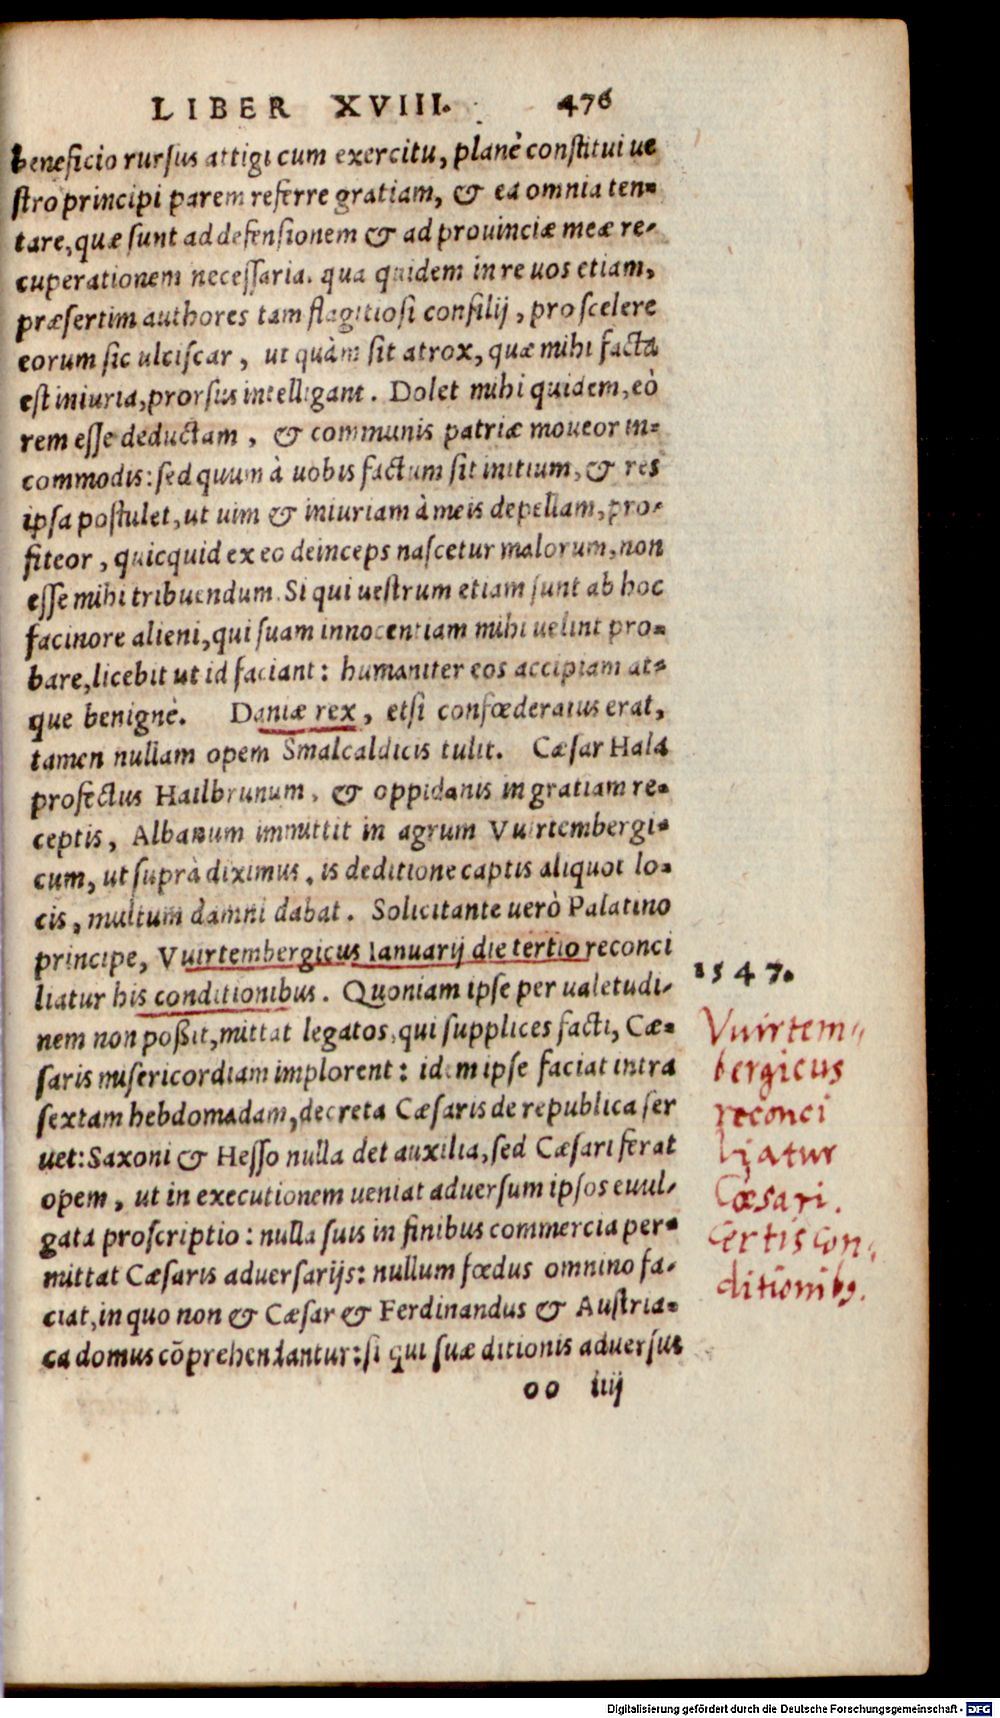 LIBER XVIII. 476
beneficio rursus attigi cum exercitu, planè constitui ue
stro principi parem referre gratiam, & ea omnia ten-
tare, quæ sunt ad defensionem & ad prouinciæ meæ re-
cuperationem necessaria. qua quidem in re uos etiam,
præsertim authores tam flagitiosi consilij, pro scelere
eorum sic ulciscar, ut quàm sit atrox, quæ mihi facta
est iniuria, prorsus intelligant. Dolet mihi quidem, eò
rem esse deductam, & communis patriæ moueor in-
commodis: sed quum à uobis factum sit initium, & res
ipsa postulet, ut uim & iniuriam à meis depellam, pro-
fiteor, quicquid ex eo deinceps nascetur malorum, non
esse mihi tribuendum. Si qui uestrum etiam sunt ab hoc
facinore alieni, qui suam innocentiam mihi uelint pro-
bare, licebit ut id faciant: humaniter eos accipiam at-
que benignè. Daniæ rex, etsi confœderatus erat,
tamen nullam opem Smalcaldicis tulit. Cæsar Hala
profectus Hailbrunum, & oppidanis in gratiam re-
ceptis, Albanum immittit in agrum Vuirtembergi-
cum, ut suprà diximus. is deditione captis aliquot lo-
cis, multum damni dabat. Solicitante uerò Palatino
principe, Vuirtembergicus Ianuarij die tertio reconci
1547.
liatur his conditionibus. Quoniam ipse per ualetudi-
nem non poßit, mittat legatos, qui supplices facti, Cæ-
saris misericordiam implorent: idem ipse faciat intra
sextam hebdomadam, decreta Cæsaris de republica ser
uet: Saxoni & Hesso nulla det auxilia, sed Cæsari ferat
opem, ut in executionem ueniat aduersum ipsos euul-
gata proscriptio: nulla suis in finibus commercia per-
mittat Cæsaris aduersarijs: nullum fœdus omnino fa-
ciat, in quo non & Cæsar & Ferdinandus & Austria-
ca domus cõprehendantur: si qui suæ ditionis aduersus
oo iiij
Vuirtem-
bergicus
reconci
liatur
Cæsari.
Certis con-
ditionibꝯ.
Digitalisierung gefördert durch die Deutsche Forschungsgemeinschaft - DFG